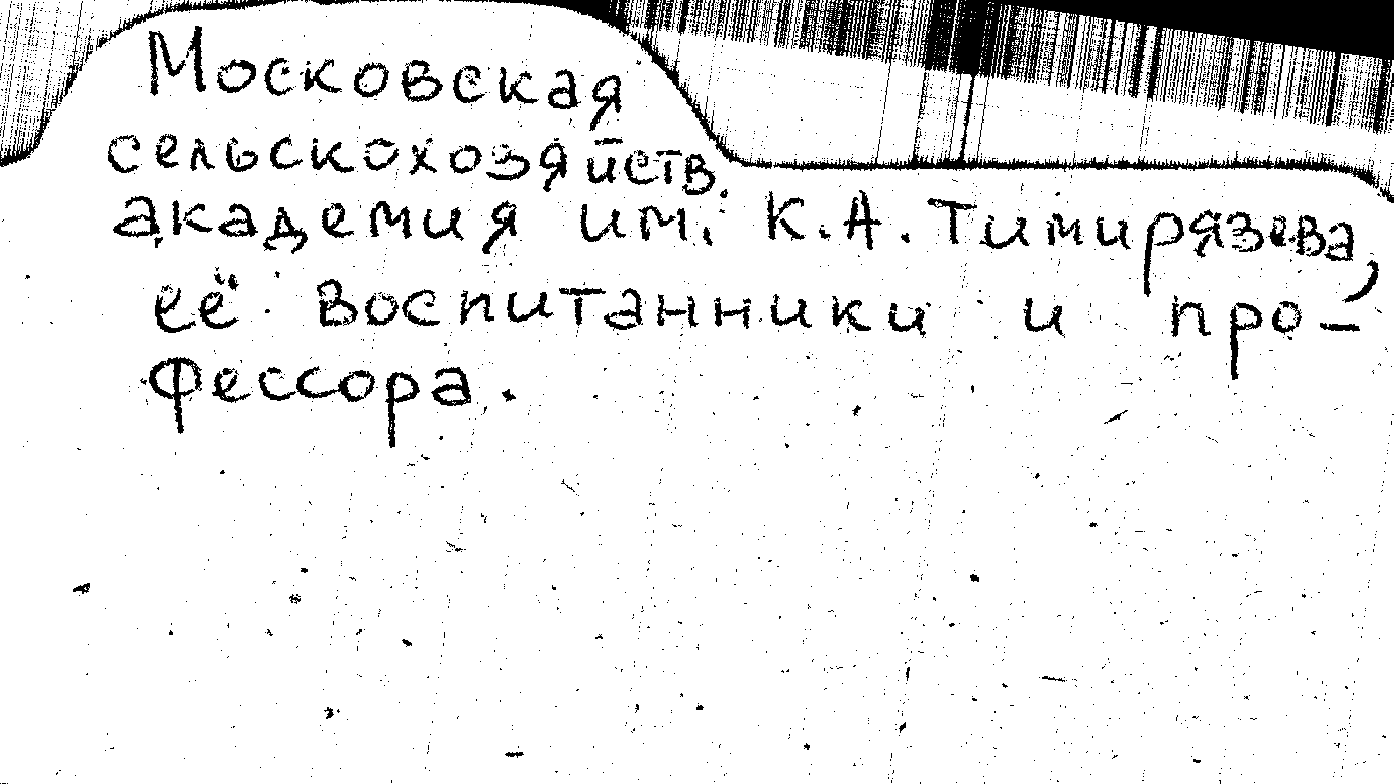 Московская
сельскохозяйств.
академия им. К.А. Тимирязева,
её воспитанники и про-
фессора.